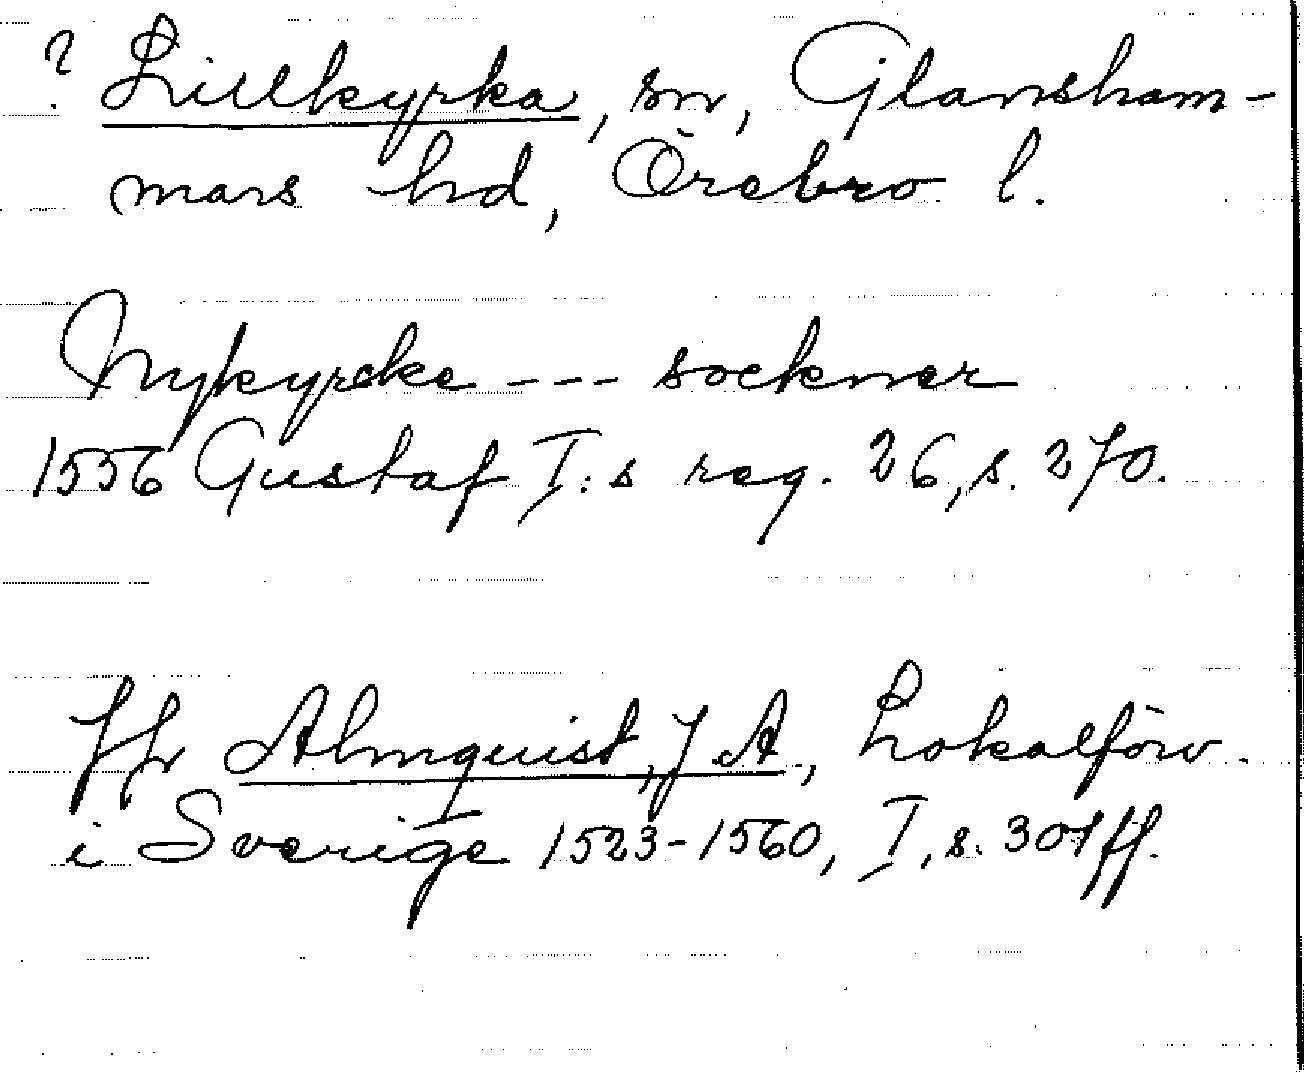 ? Lillkyrka, sn, Glansham-
mars hd, Örebro l.
Nykyrcke --- socknar
1556 Gustaf I:s reg. 26, s. 270.
Jfr Almquist, J A, Lokalförv.
i Sverige 1523-1560, I, s. 301 ff.